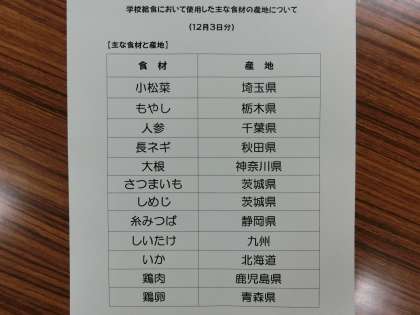 学校給食において使用した主な食材の産地について
(12月3日分)
【主な食材と産地】
食材 産地
小松菜 埼玉県
もやし 栃木県
人参 千葉県
長ネギ 秋田県
大根 神奈川県
さつまいも 茨城県
しめじ 茨城県
糸みつば 静岡県
しいたけ 九州
いか 北海道
鶏肉 鹿児島県
鶏卵 青森県